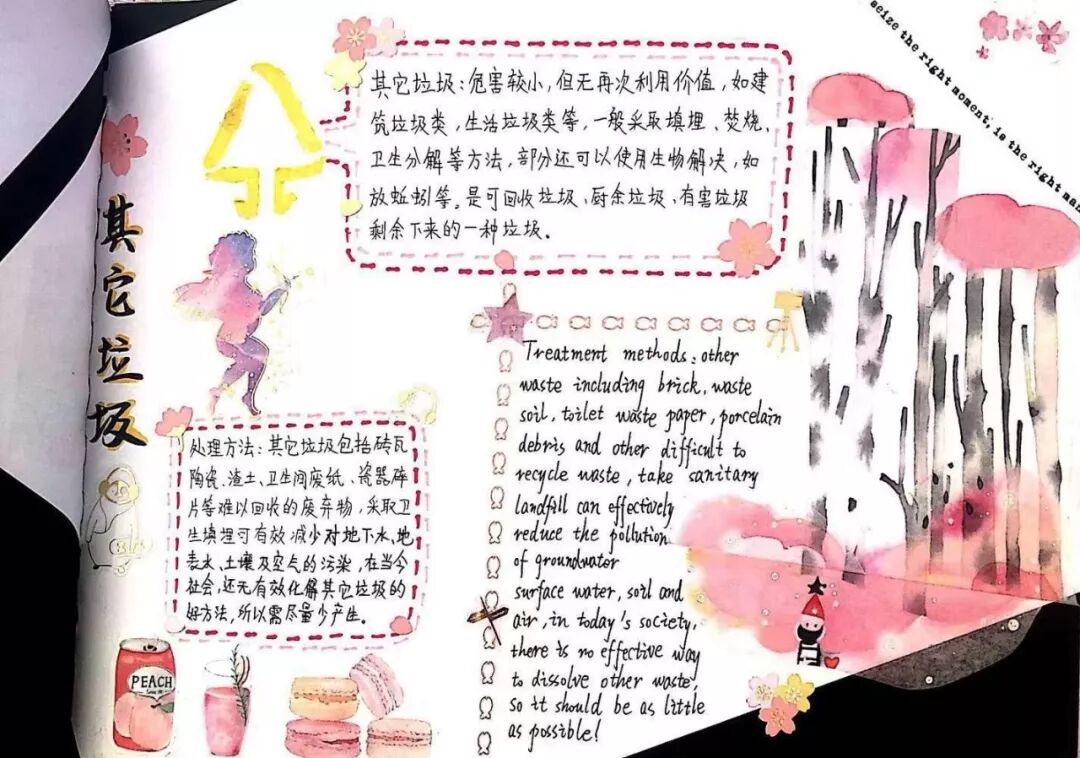 其它垃圾
其它垃圾：危害较小，但无再次利用价值，如建
筑垃圾类，生活垃圾类等，一般采取填埋、焚烧、
卫生分解等方法，部分还可以使用生物解决，如
放蚯蚓等。是可回收垃圾、厨余垃圾、有害垃圾
剩余下来的一种垃圾。
seize the right moment, is the right
处理方法：其它垃圾包括砖瓦
陶瓷、渣土、卫生间废纸、瓷器碎
片等难以回收的废弃物，采取卫
生填埋可有效减少对地下水、地
表水、土壤及空气的污染，在当今
社会，还无有效化解其它垃圾的
好方法，所以需尽量少产生。
Treatment methods: other
waste including brick, waste
soil, toilet waste paper, porcelain
debris and other difficult to
recycle waste, take sanitary
landfill can effectively
reduce the pollution
of groundwater
surface water, soil and
air, in today's society,
there is no effective way
to dissolve other waste,
so it should be as little
as possible!
PEACH